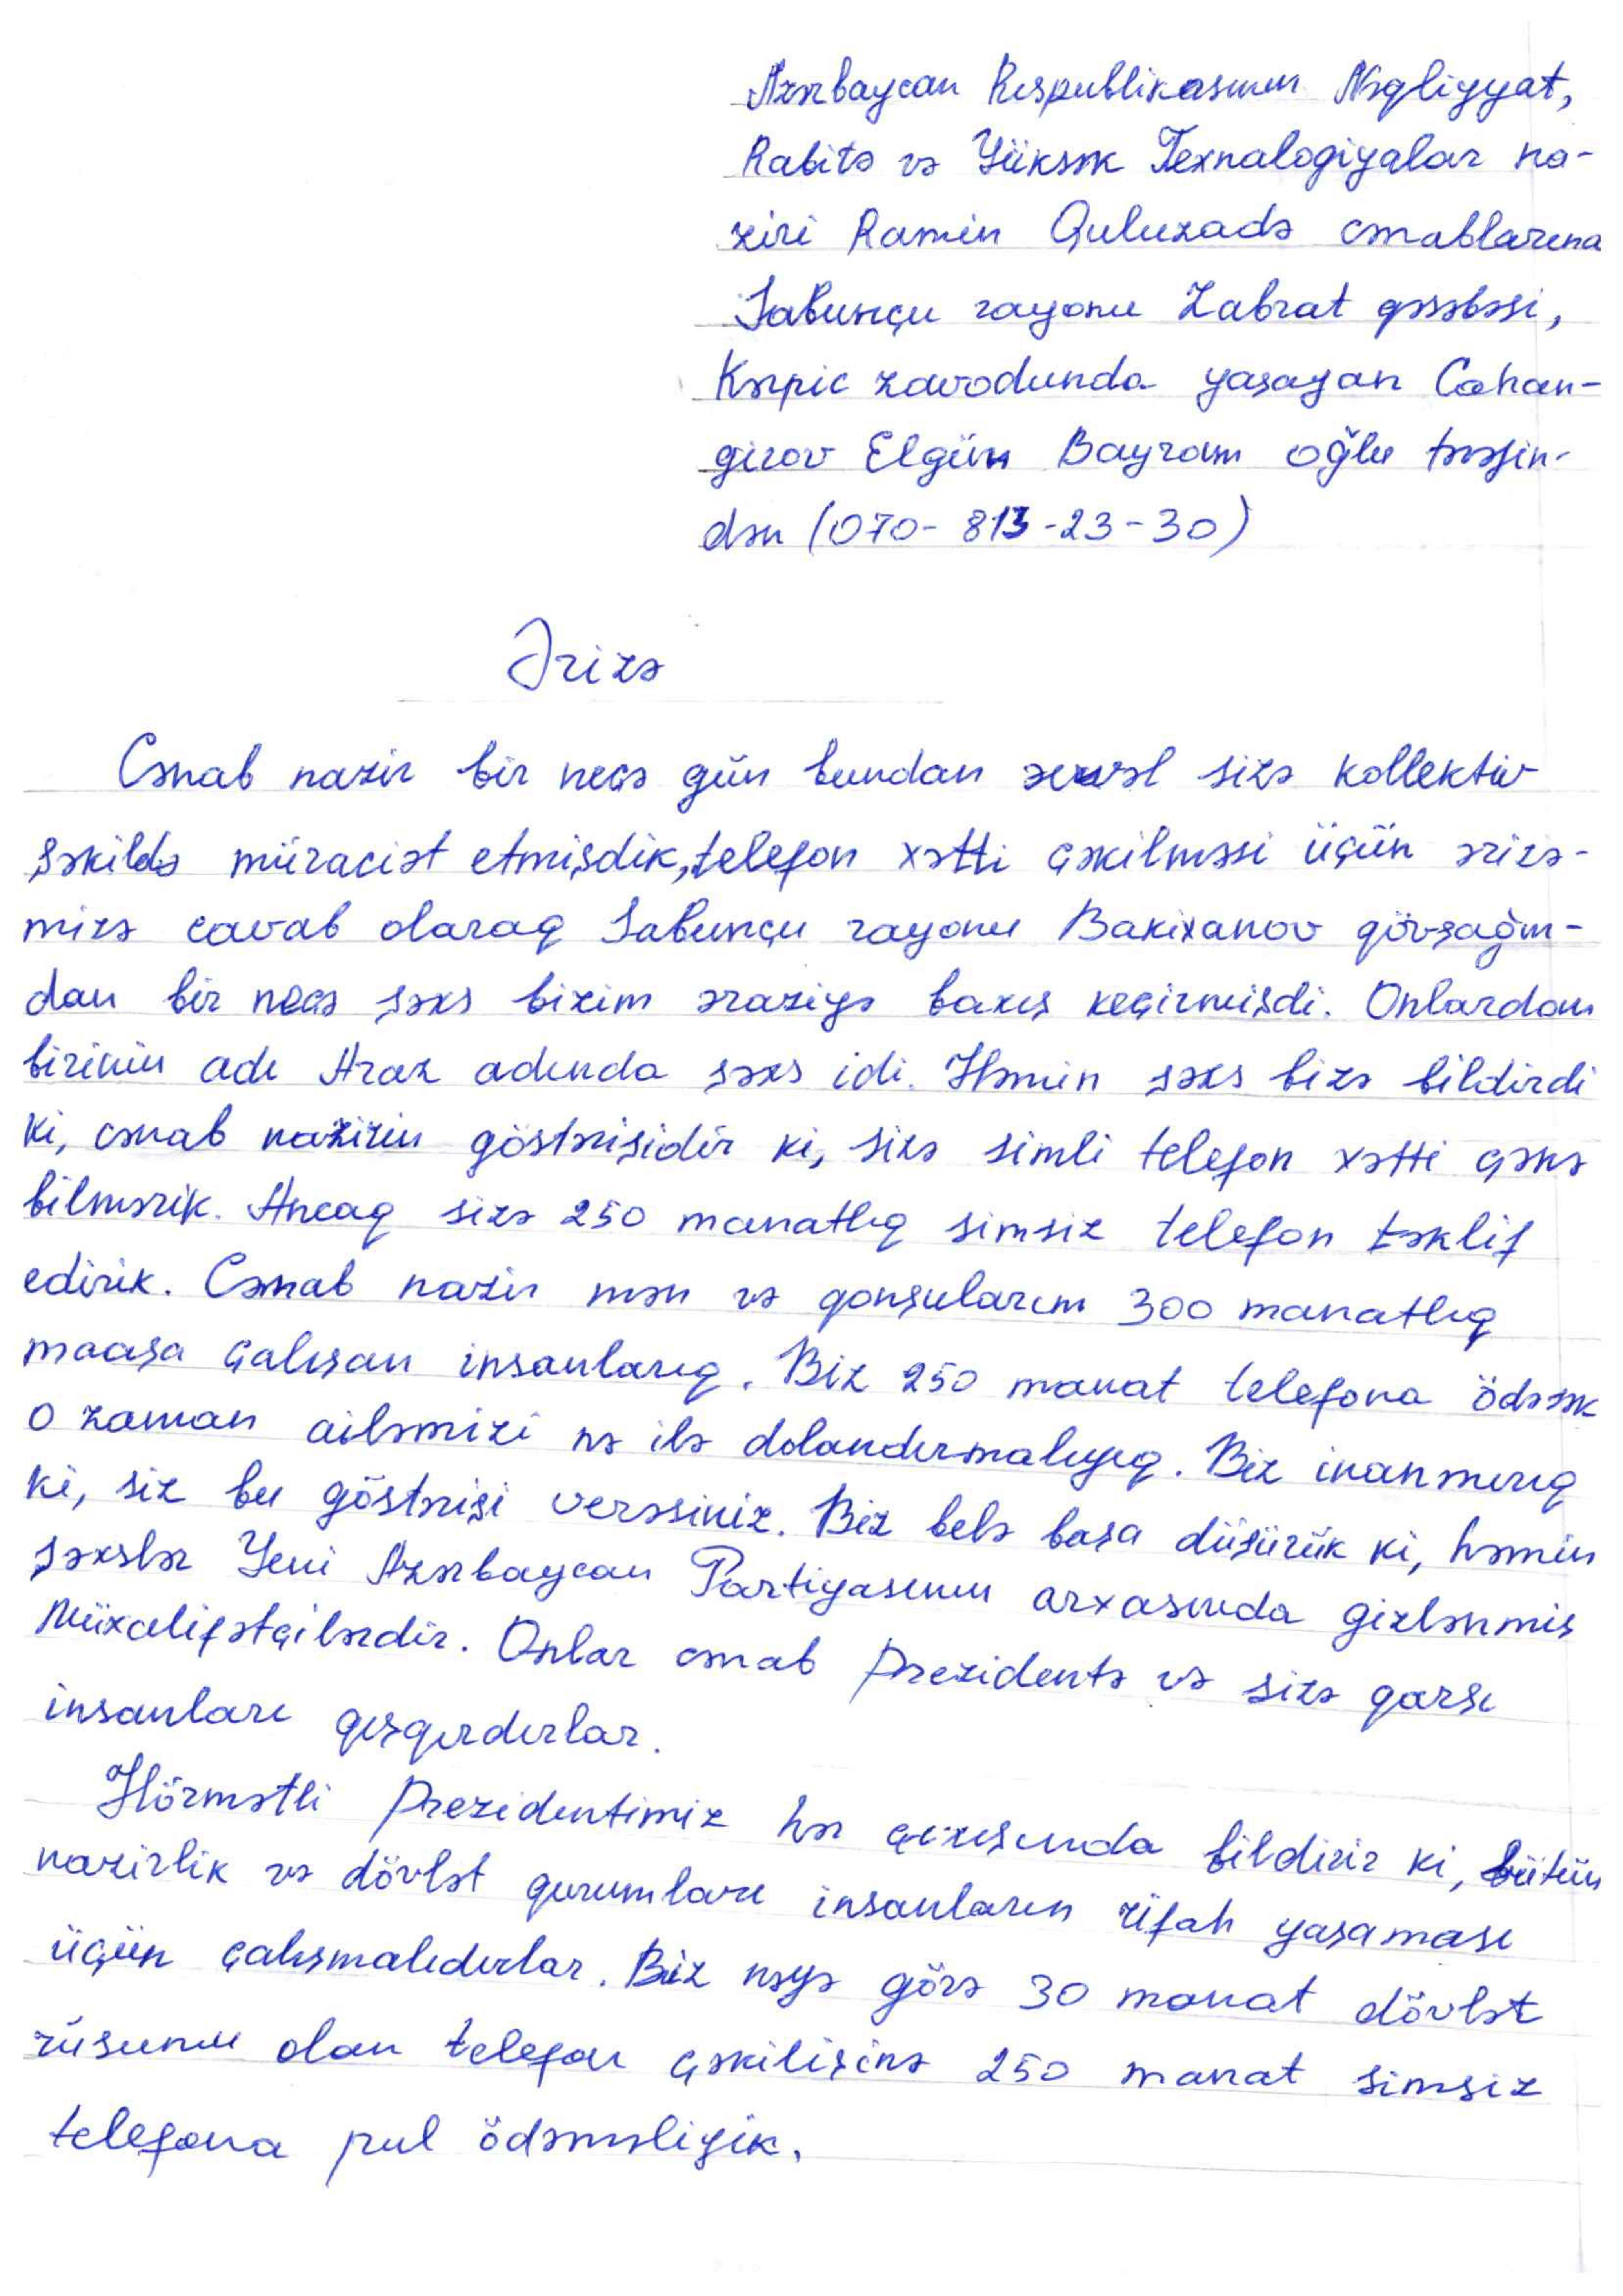 Azərbaycan Respublikasının Nəqliyyat,
Rabitə və Yüksək Texnalogiyalar na-
ziri Ramin Quluzadə cənablarına
Sabunçu rayonu Zabrat qəsəbəsi,
Kərpic zavodunda yaşayan Cahan-
girov Elgün Bayram oğlu tərəfin-
dən (070-813-23-30)
Ərizə
Cənab nazir bir neçə gün bundan əvvəl sizə kollektiv
şəkildə müraciət etmişdik, telefon xətti çəkilməsi üçün ərizə-
mizə cavab olaraq Sabunçu rayonu Bakixanov qövşağın-
dan bir neçə şəxs bizim əraziyə baxış keçirmişdi. Onlardan
birinin adı Araz adında şəxs idi. Həmin şəxs bizə bildirdi
ki, cənab nazirin göstərişidir ki, sizə simli telefon xətti çəkə
bilmərik. Ancaq sizə 250 manatlıq simsiz telefon təklif
edirik. Cənab nazir mən və qonşularım 300 manatlıq
maaşa çalışan insanlarıq. Biz 250 manat telefona ödəsək
o zaman ailəmizi nə ilə dolandırmalıyıq. Biz inanmırıq
ki, siz bu göstərişi verəsiniz. Biz belə başa düşürük ki, həmin
şəxslər Yeni Azərbaycan Partiyasının arxasında gizlənmiş
Müxalifətçilərdir. Onlar cənab Prezidentə və sizə qarşı
insanları qışqırdırlar.
Hörmətli Prezidentimiz hər çıxışında bildirir ki, bütün
nazirlik və dövlət qurumları insanların rifah yaşaması
üçün çalışmalıdırlar. Biz nəyə görə 30 manat dövlət
rüsumu olan telefon çəkilişinə 250 manat simsiz
telefona pul ödəməliyik.